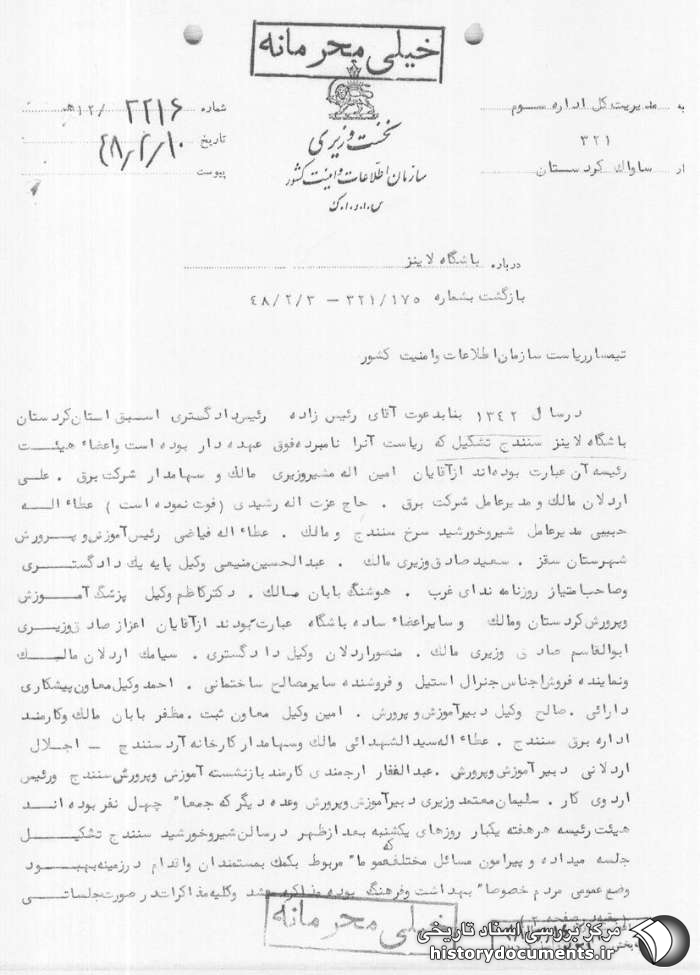 خیلی محرمانه
به مدیریت کل اداره سوم
۳۲۱
از ساواک کردستان
نخست وزیری
سازمان اطلاعات و امنیت کشور
س.ا.و.ا.ک
شماره ۲۲۱۶ /۱۲ه
تاریخ ۴۸/۲/۱۰
پیوست
درباره باشگاه لاینز
بازگشت بشماره ۳۲۱/۱۷۵ – ۴۸/۲/۳
تیمسار ریاست سازمان اطلاعات و امنیت کشور
در سال ۱۳۴۲ بنا بدعوت آقای رئیس زاده رئیس دادگستری اسبق استان کردستان
باشگاه لاینز سنندج تشکیل که ریاست آنرا نامبرده فوق عهده دار بوده است و اعضاء هیئت
رئیسه آن عبارت بوده‌اند از آقایان امین اله مشیر وزیری مالک و سهامدار شرکت برق . علی
اردلان مالک و مدیر عامل شرکت برق . حاج عزت اله رشیدی (فوت نموده است) عطاء اله
حبیبی مدیر عامل شیر و خورشید سرخ سنندج و مالک . عطاء اله فیاضی رئیس آموزش و پرورش
شهرستان سقز . سعید صادق وزیری مالک . عبدالحسین منیعی وکیل پایه یک دادگستری
و صاحب امتیاز روزنامه ندای غرب . هوشنگ بابان مالک . دکتر کاظم وکیل پزشگ آموزش
و پرورش کردستان و مالک و سایر اعضاء ساده باشگاه عبارت بودند از آقایان اعزاز صادق وزیری
ابوالقاسم صادق وزیری مالک . منصور اردلان وکیل دادگستری . سیامک اردلان مالک
و نماینده فروش اجناس جنرال استیل و فروشنده سایر مصالح ساختمانی . احمد وکیل معاون پیشکاری
دارائی . صالح وکیل دبیر آموزش و پرورش . امین وکیل معاون ثبت . مظفر بابان مالک و کارمند
اداره برق سنندج . عطاء اله سید الشهدائی مالک و سهامدار کارخانه آرد سنندج – اجلال
اردلانی دبیر آموزش و پرورش . عبدالغفار ارجمندی کارمند بازنشسته آموزش و پرورش سنندج و رئیس
اردوی کار . سلیمان معتمد وزیری دبیر آموزش و پرورش وعده دیگر که جمعا" چهل نفر بوده اند
هیئت رئیسه هر هفته یکبار روزهای یکشنبه بعد از ظهر در سالن شیر و خورشید سنندج تشکیل
جلسه میداده و پیرامون مسائل مختلف که عموما" مربوط بکمک بمستمندان و اقدام در زمینه بهبود
وضع عمومی مردم خصوصا" بهداشت و فرهنگ بوده مذاکره میشد و کلیه مذاکرات در صورت جلساتی
خیلی محرمانه
مرکز بررسی اسناد تاریخی
historydocuments.ir